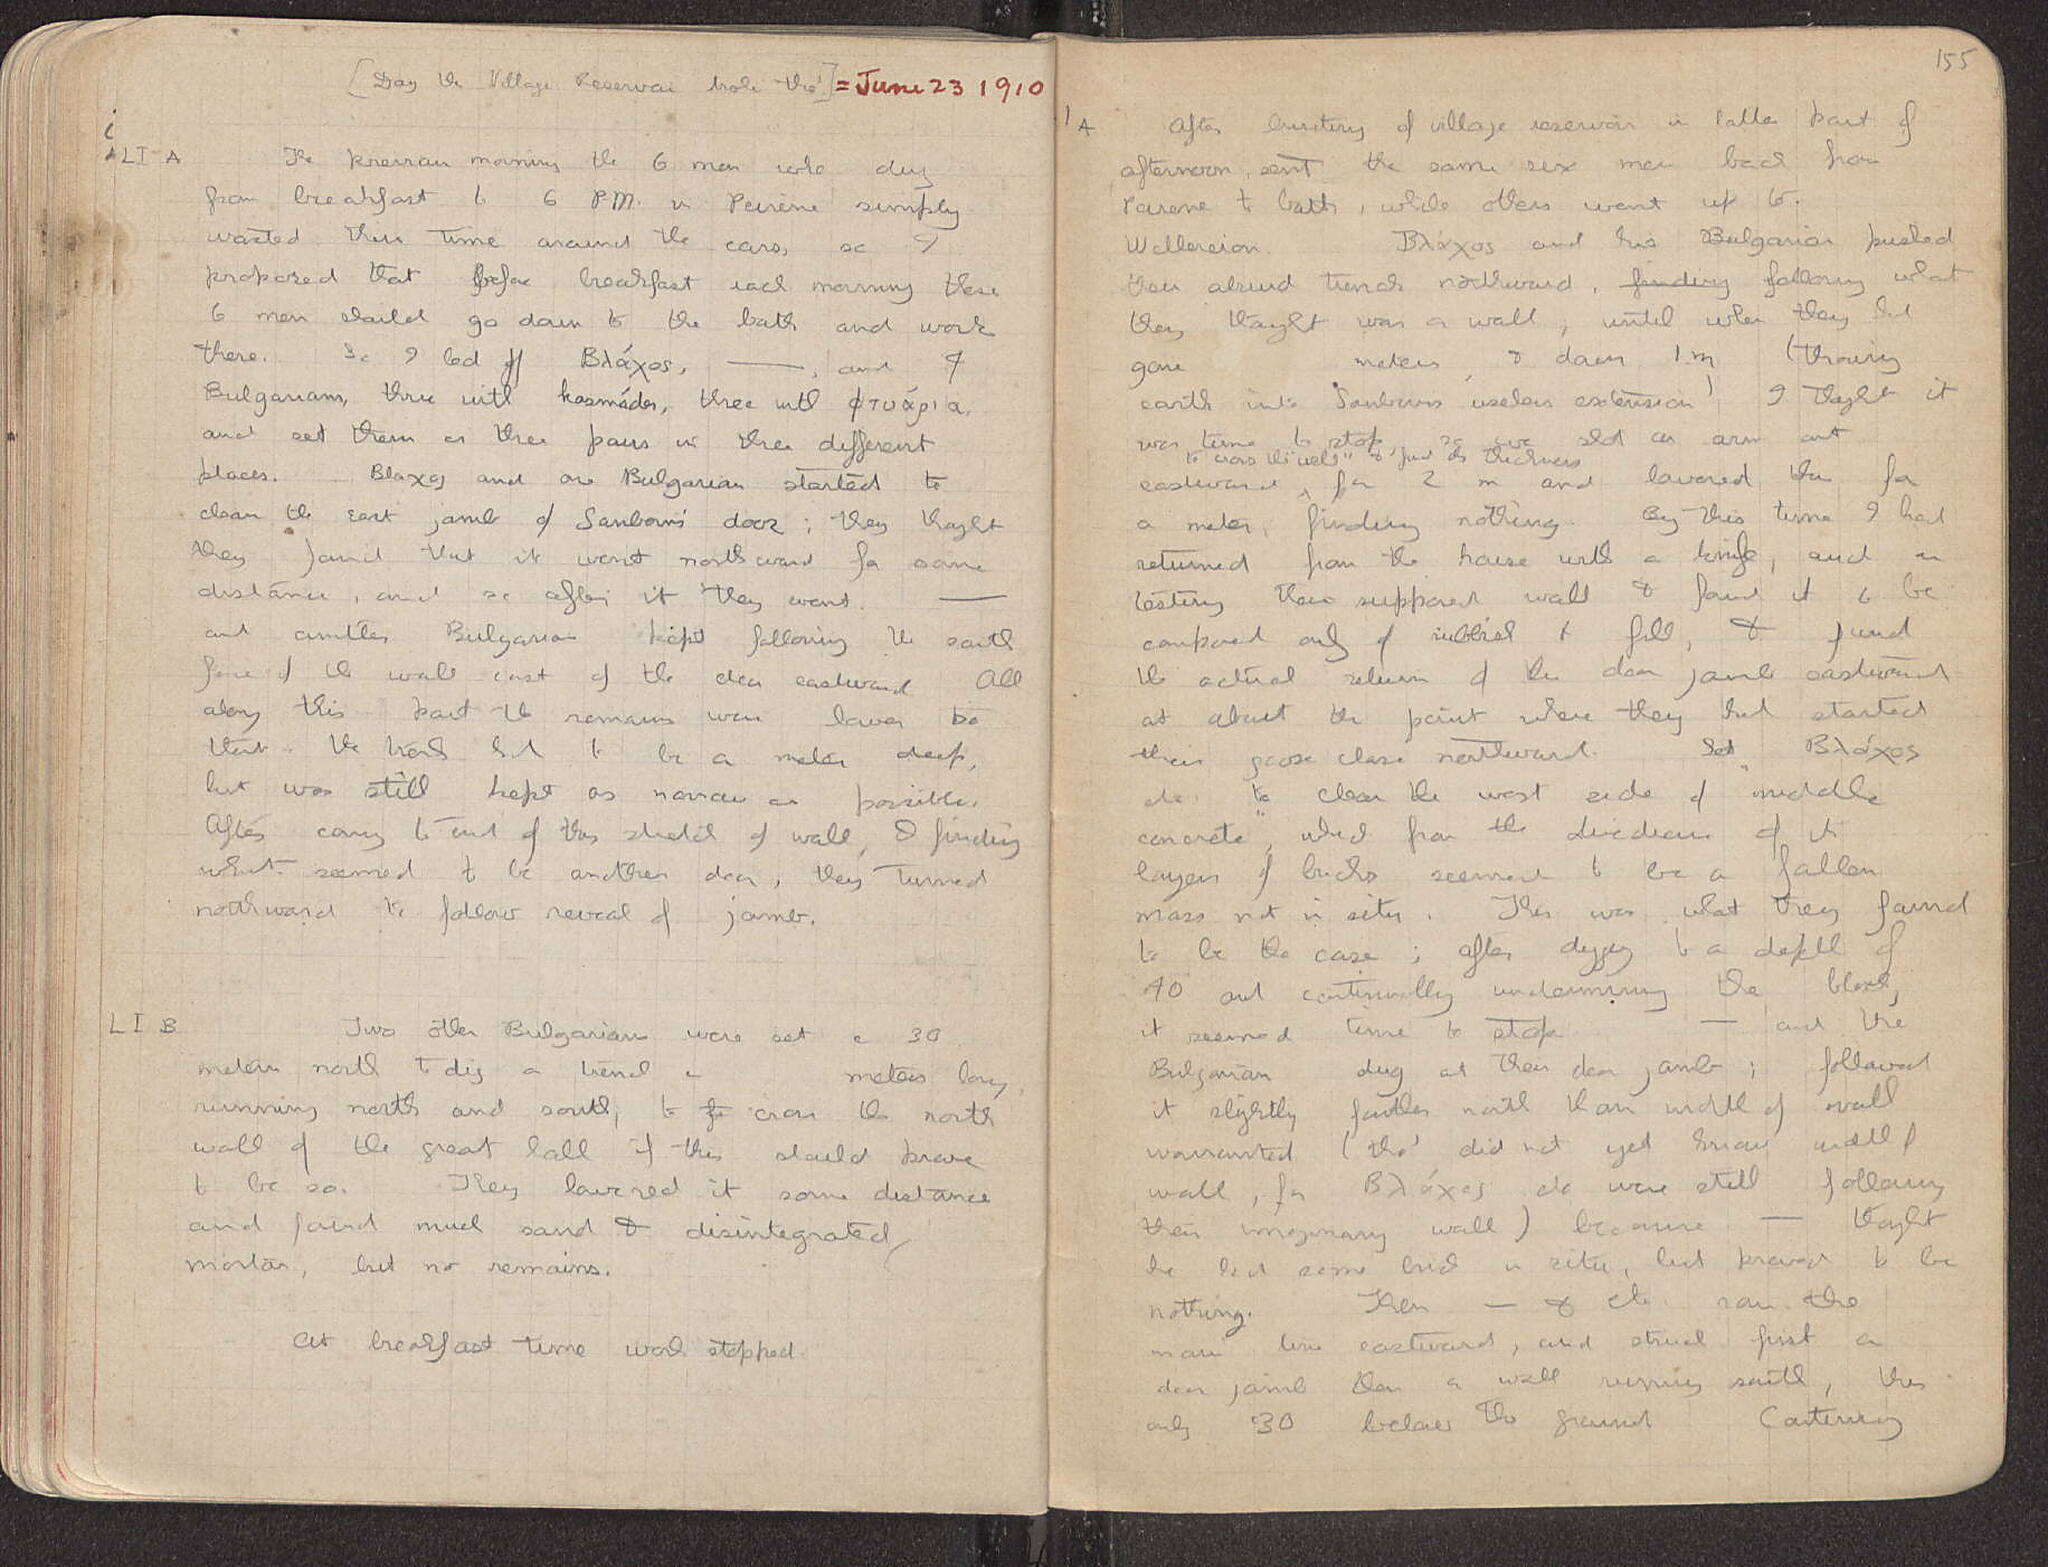 [Day the Village Reservoir broke thro'] = June 23 1910
LI A The previous morning the 6 men who dug
from breakfast to 6 P.M. in Peirene simply
wasted their time around the cars, so I
proposed that before breakfast each morning these
6 men should go down to the bath and work
there. So I led off Βλάχος, ——, and 4
Bulgarians, three with kasmádes, three with φτυάρια,
and set them as three pairs in three different
places. Βλαχος and one Bulgarian started to
clean the east jamb of Sanborn's door; they thought
they found that it went northward for some
distance, and so after it they went. ——
and another Bulgarian kept following the south
face of the wall east of the door eastward All
along this part the remains were lower so
that the trench had to be a meter deep,
but was still kept as narrow as possible.
After coming to end of this stretch of wall, & finding
what seemed to be another door, they turned
northward to follow reveal of jamb.
LI B Two other Bulgarians were set c 30
meters north to dig a trench c meters long
running north and south, to cross the north
wall of the great hall if this should prove
to be so. They lowered it some distance
and found much sand & disintegrated
mortar, but no remains.
At breakfast time work stopped.
155
I A After bursting of village reservoir in latter part of
afternoon, sent the same six men back from
Peirene to bath, while others went up to
Wellereion. Βλάχος and his Bulgarian pushed
their absurd trench northward, finding following what
they thought was a wall, until when they had
gone meters, & down 1 m (throwing
earth into Sanborn's useless extension) I thought it
was time to stop, so we shot an arm out
to cross the "wall" & find its thickness
eastward for 2 m and lowered this for
a meter, finding nothing. By this time I had
returned from the house with a knife, and on
testing their supposed wall & found it to be
composed only of rubbish & fill, & found
the actual return of the door jamb eastward
at about the point where they had started
their goose chase northward. Set Βλάχος
etc. to clear the west side of "middle
concrete", which from the direction of its
layers of bricks seemed to be a fallen
mass not in situ. This was what they found
to be the case; after digging to a depth of
40 and continually undermining the block,
it seemed time to stop — and the
Bulgarian dug at their door jamb; followed
it slightly farther north than width of wall
warranted (tho' did not yet know width of
wall, for Βλάχος etc were still following
their imaginary wall) because — thought
he had some brick in situ, but proved to be
nothing. Then — & etc. ran the
main line eastward, and struck first a
door jamb then a wall running south, this
only 30 below the ground Continuing